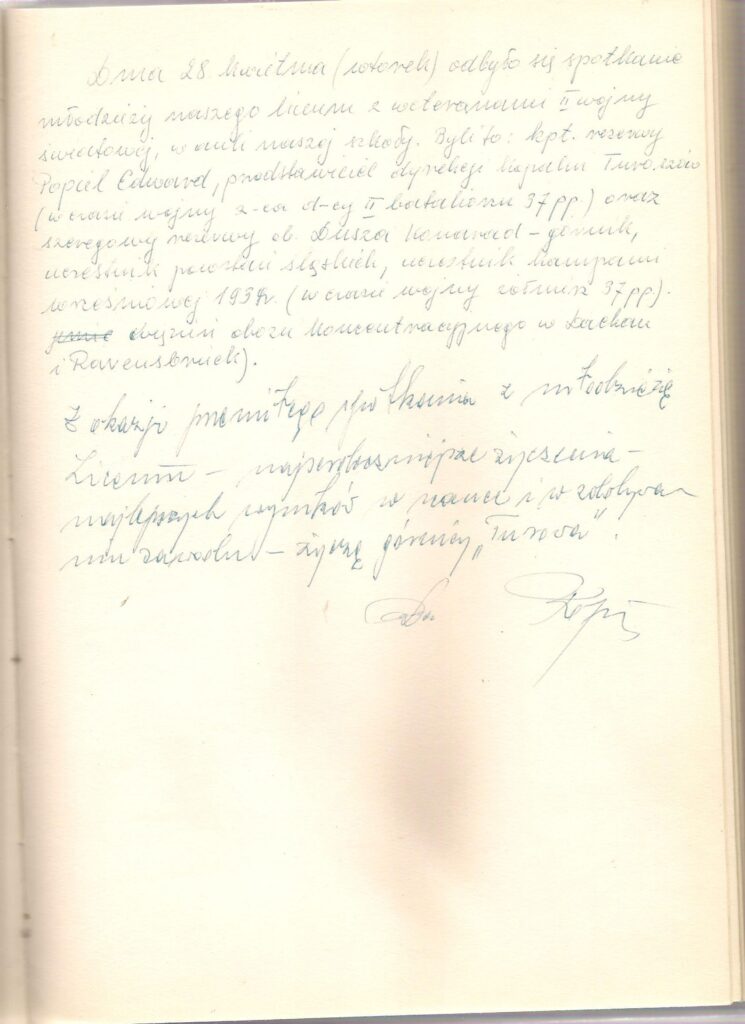 Dnia 28 kwietnia (wtorek) odbyło się spotkanie
młodzieży naszego liceum z weteranami II wojny
światowej, w auli naszej szkoły. Byli to: kpt. rezerwy
Popiel Edward, przedstawiciel dyrekcji Kopalni Turoszów
(w czasie wojny z-ca d-cy II batalionu 37 pp.) oraz
szeregowy rezerwy ob. Dusza Konarad - górnik,
uczestnik powstań śląskich, uczestnik kampanii
wrześniowej 1939r. (w czasie wojny żołnierz 37 pp.).
więzień obozu koncentracyjnego w Dachau
i Ravensbrück).
Z okazji przemiłego spotkania z młodzieżą
Liceum - najserdeczniejsze życzenia -
najlepszych wyników w nauce i w zdobywa-
niu zawodu - życzą górnicy „Turowa".